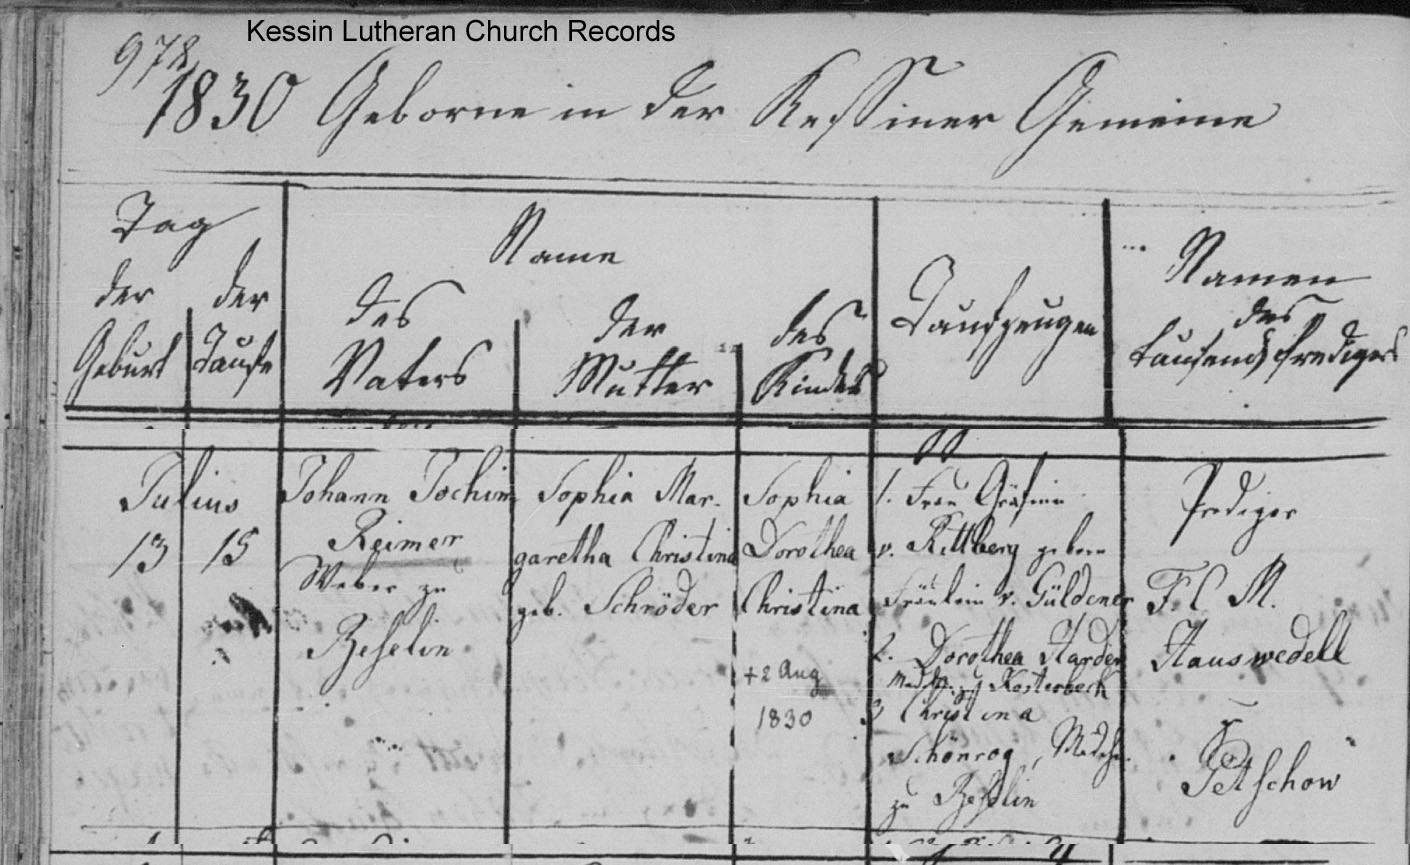 Kessin Lutheran Church Records
972
1830 Geborne in der Kessiner Gemeine
Tag
der
Geburt
der
Taufe
Name
des
Vaters
der
Mutter
des
Kindes
Taufzeugen
Namen
des
taufend. Predigers
Julius
13
15
Johann Jochim
Reimer
Weber zu
Beselin
Sophia Mar-
garetha Christina
geb. Schröder
Sophia
Dorothea
Christina
+2 Aug
1830
1. Frau Gräfinn
v. Rittberg geborn
Fräulein v. Güldener
2. Dorothea Harder
Mädch. zu Kosterbeck
3 Christina
Schonrog, Mädch.
zu Beselin
Prediger
F. C. M.
Hauswedell
Petschow